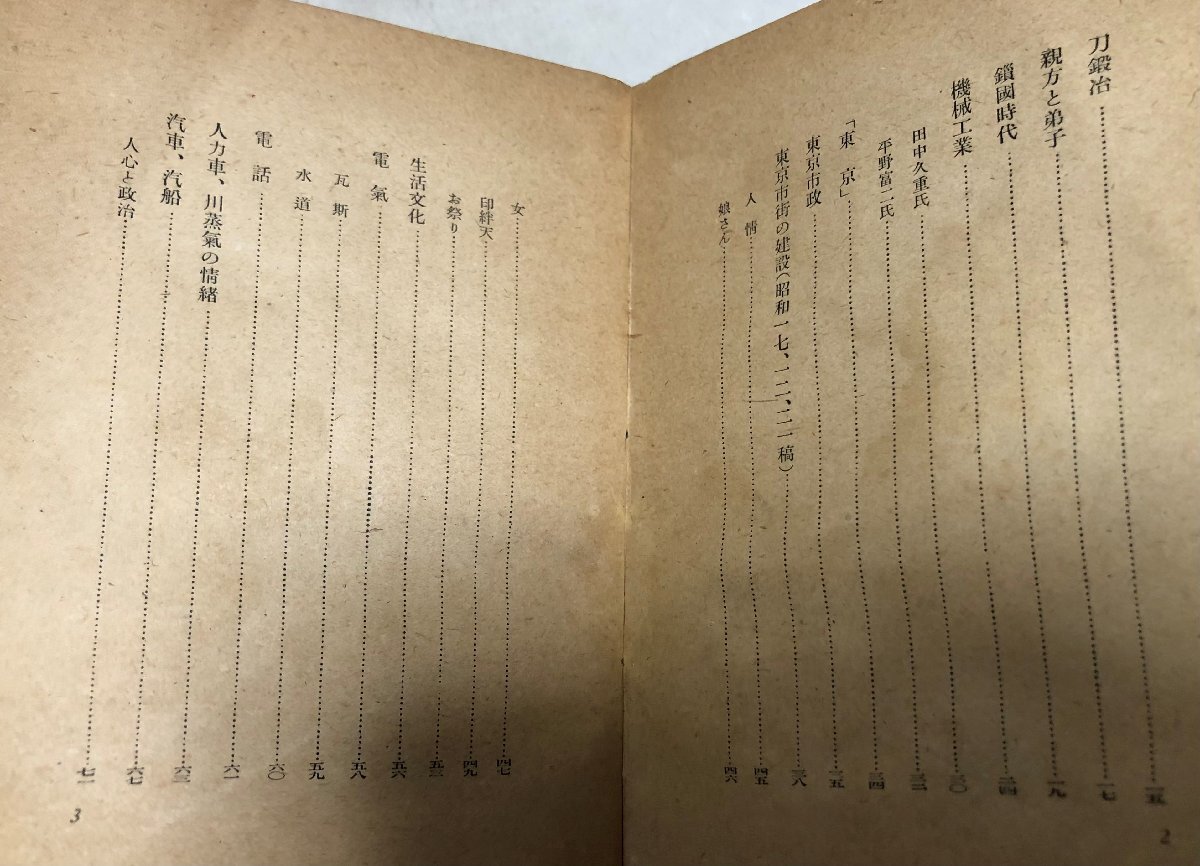 刀鍛冶……一五
親方と弟子……一七
鎖國時代……一九
機械工業……二四
田中久重氏……三〇
平野富二氏……三二
「東京」……三四
東京市政……三五
東京市街の建設(昭和一七、一二、二一稿)……三八
人情……四五
娘さん……四六
2
女……四七
印絆天……四九
お祭り……五三
生活文化……五六
電氣……五八
瓦斯……五九
水道……六〇
電話……六一
人力車、川蒸氣の情緒……六三
汽車、汽船……六七
人心と政治……七一
3